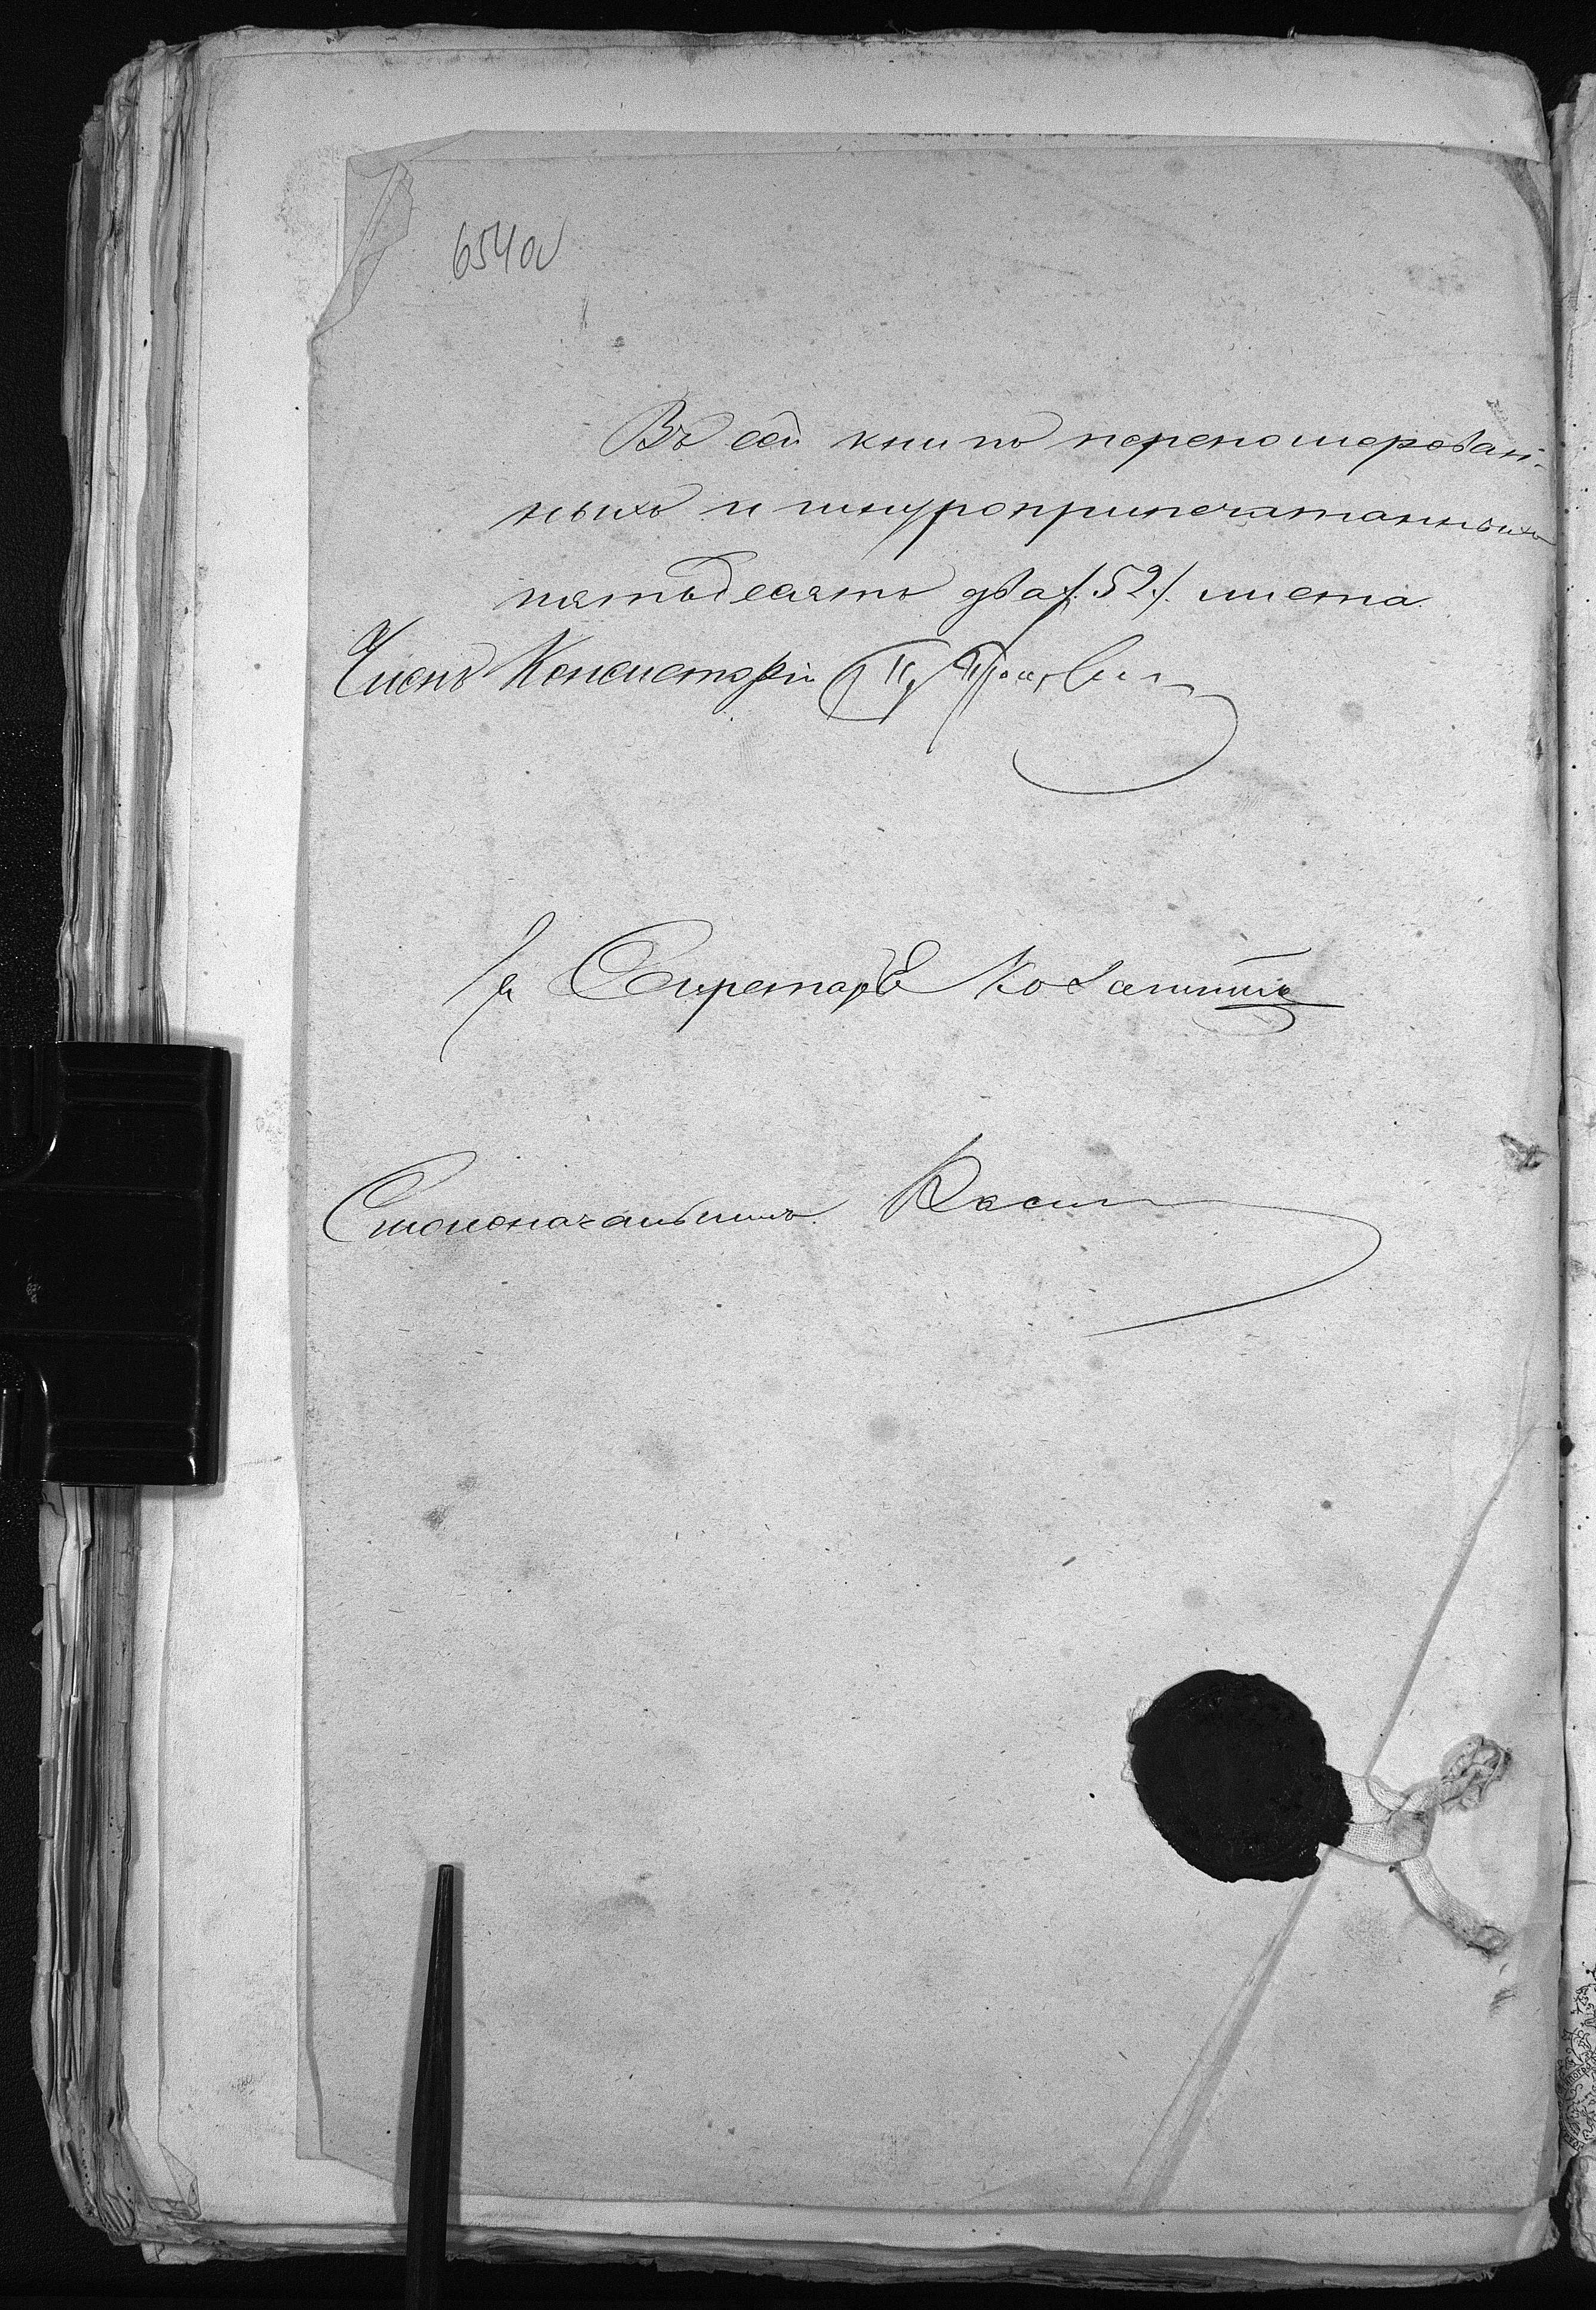 654об
Въ сей книгѣ перенумерован-
ныхъ и шнуроприпечатанныхъ
пятьдесятъ два /:52:/ листа.
Членъ Консисторіи
Секретарь
Столоначальникъ